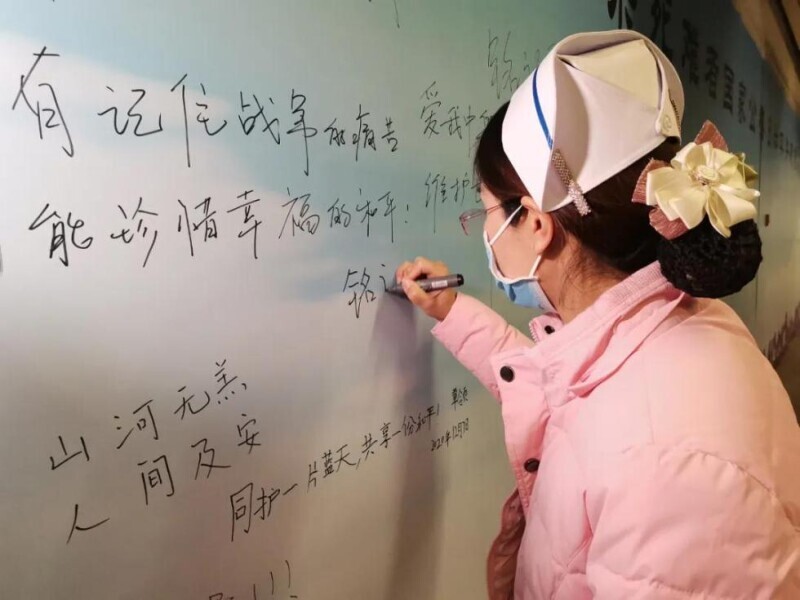 死难者国家公
铭
有记住战争的痛苦
爱我中
能珍惜幸福的和平!
维护
铭
山河无恙
人间及安
同护一片蓝天,共享一份和平!
!!!